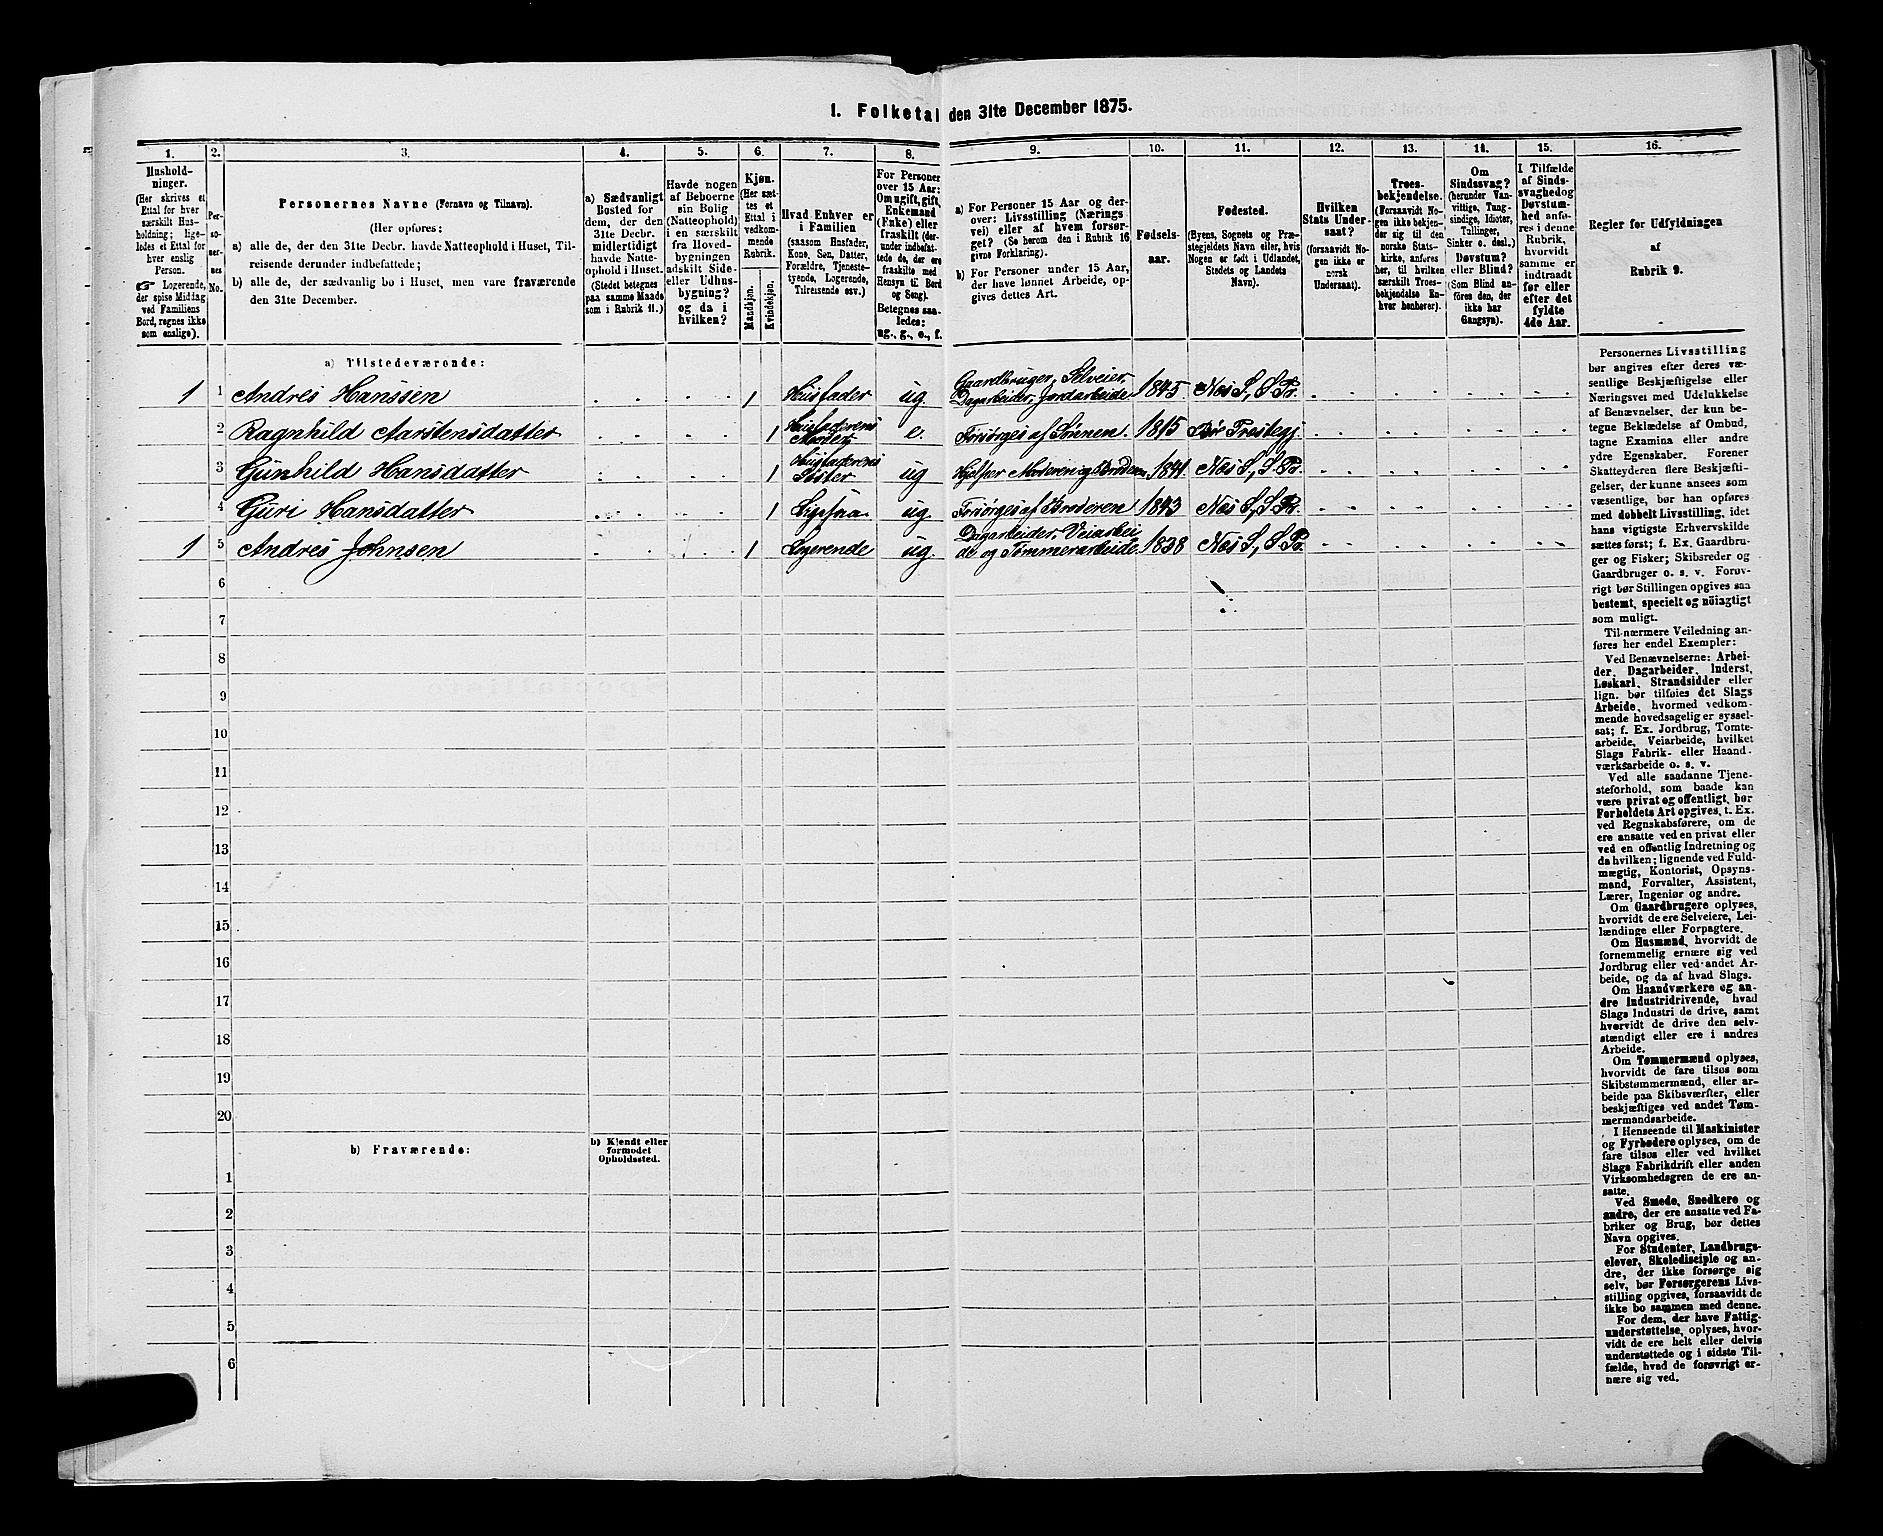 1. Folketal den 31te December 1875.
1. 2. 3. 4. 5. 6. 7. 8. 9. 10. 11. 12. 13. 14. 15. 16.
Hushold-
ninger.
(Her skrives et
Ettal for hver
særskilt Hus-
holdning; lige-
ledes et Ettal for
hver enslig
Person.
☞ Logerende,
der spise Middag
ved Familiens
Bord, regnes ikke
som enslige).
Per-
so-
ner-
nes
No.
Personernes Navne (Fornavn og Tilnavn).
(Her opføres:
a) alle de, der den 31te Decbr. havde Natteophold i Huset, Til-
reisende derunder indbefattede;
b) alle de, der sædvanlig bo i Huset, men vare fraværende
den 31te December.
a) Sædvanligt
Bosted for
dem, der den
31te Decbr.
midlertidigt
havde Natte-
ophold i Huset.
(Stedet betegnes
paa samme Maade
som i Rubrik 11.)
Havde nogen
af Beboerne
sin Bolig
(Natteophold)
i en særskilt
fra Hoved-
bygningen
adskilt Side-
eller Udhus-
bygning?
og da i
hvilken?
Kjøn.
(Her sæt-
tes et
Ettal i
vedkom-
mende
Rubrik.
Mandkjøn.
Kvindekjøn.
Hvad Enhver er
i Familien
(saasom Husfader,
Kone, Søn, Datter,
Forældre, Tjeneste-
tyende, Logerende,
Tilreisende osv.)
For Personer
over 15 Aar:
Om ugift, gift,
Enkemand
(Enke) eller
fraskilt (der-
under indbefat-
tede de, der ere
fraskilte med
Hensyn til Bord
og Seng).
Betegnes saa-
ledes:
ug., g., e., f.
a) For Personer 15 Aar og der-
over: Livsstilling (Nærings-
vei) eller af hvem forsør-
get? (Se herom den i Rubrik 16
givne Forklaring).
b) For Personer under 15 Aar,
der have lønnet Arbeide, op-
gives dettes Art.
Fødsels-
aar.
Fødested.
(Byens, Sognets og Præ-
stegjeldets Navn eller, hvis
Nogen er født i Udlandet,
Stedets og Landets
Navn).
Hvilken
Stats Under-
saat?
(forsaavidt No-
gen ikke er
norsk
Undersaat).
Troes-
bekjendelse.
(Forsaavidt No-
gen ikke bekjen-
der sig til den
norske Stats-
kirke, anføres
her, til hvilken
særskilt Troes-
bekjendelse En-
hver henhører).
Om
Sindssvag?
(herunder Van-
vittige, Tung-
sindige, Idioter,
Tullinger,
Sinker o. desl.)
Døvstum?
eller Blind?
(Som Blind an-
føres den, der
ikke har
Gangsyn).
I Tilfælde
af Sinds-
svaghed og
Døvstum-
hed anfø-
res i denne
Rubrik,
hvorvidt
samme er
indtraadt
før eller
efter det
fyldte
4de Aar.
Regler for Udfyldningen
af
Rubrik 9.
a) Tilstedeværende:
1 1 Andres Hanssen 1 Husfader ug Gaardbruger, Selveier, Dagarbeider, Jordarbeide 1845 Næs S, S Pr.
2 Ragnhild Aarstensdatter 1 Husfaderens Moder e. Forsørges af Sønnen. 1815 Bø Prestegj
3 Gunhild Hansdatter 1 Husfaderens Søster ug Hjelper Moderen og Broderen 1841 Næs S, S Pr.
4 Guri Hansdatter 1 Ligesaa ug Forsørges af Broderen 1843 Næs S, S Pr.
1 5 Andres Johnsen 1 Logerende ug Dagarbeider, Veiarbeide og Tømmerarbeide 1838 Næs S, S Pr.
6
7
8
9
10
11
12
13
14
15
16
17
18
19
20
b) Fraværende:
b) Kjendt eller
formodet
Opholdssted.
1
2
3
4
5
6
Personernes Livsstilling
bør angives efter deres væ-
sentlige Beskjæftigelse eller
Næringsvei med Udelukkelse
af Benævnelser, der kun be-
tegne Beklædelse af Ombud,
tagne Examina eller andre
ydre Egenskaber. Forener
Skatteyderen flere Beskjæfti-
gelser, der kunne ansees som
væsentlige, bør han opføres
med dobbelt Livsstilling, idet
hans vigtigste Erhvervskilde
sættes først; f. Ex. Gaardbru-
ger og Fisker; Skibsreder og
Gaardbruger o. s. v. Forøv-
rigt bør Stillingen opgives saa
bestemt, specielt og nøiagtigt
som muligt.
Til nærmere Veiledning an-
føres her endel Exempler:
Ved Benævnelserne: Arbei-
der, Dagarbeider, Inderst,
Løskarl, Strandsidder eller
lign. bør tilføies det Slags
Arbeide, hvormed vedkom-
mende hovedsagelig er syssel-
sat; f. Ex. Jordbrug, Tomte-
arbeide, Veiarbeide, hvilket
Slags Fabrik- eller Haand-
værksarbeide o. s. v.
Ved alle saadanne Tjene-
steforhold, som baade kan
være privat og offentligt, bør
Forholdets Art opgives, t. Ex.
ved Regnskabsførere, om de
ere ansatte ved en privat eller
ved en offentlig Indretning og
da hvilken; lignende ved Fuld-
mægtig, Kontorist, Opsyns-
mand, Forvalter, Assistent,
Lærer, Ingeniør og andre.
Om Gaardbrugere oplyses,
hvorvidt de ere Selveiere, Lei-
lændinge eller Forpagtere.
Om Husmænd, hvorvidt de
fornemmelig ernære sig ved
Jordbrug eller ved andet Ar-
beide, og da af hvad Slags.
Om Haandværkere og an-
dre Industridrivende, hvad
Slags Industri de drive, samt
hvorvidt de drive den selv-
stændigt eller ere i andres
Arbeide.
Om Tømmermænd oplyses,
hvorvidt de fare tilsøs som
Skibstømmermænd, eller ar-
beide paa Skibsværfter, eller
beskjæftiges ved andet Tøm-
mermandsarbeide.
I Henseende til Maskinister
og Fyrbødere oplyses, om de
fare tilsøs eller ved hvilket
Slags Fabrikdrift eller anden
Virksomhedsgren de ere an-
satte.
Ved Smede, Snedkere og
andre, der ere ansatte ved Fa-
briker og Brug, bør dettes
Navn opgives.
For Studenter, Landbrugs-
elever, Skoledisciple og an-
dre, der ikke forsørge sig
selv, bør Forsørgerens Livs-
stilling opgives, forsaavidt de
ikke bo sammen med denne.
For dem, der have Fattig-
understøttelse, oplyses, hvor-
vidt de ere helt eller delvis
understøttede og i sidste Til-
fælde, hvad de forøvrigt er-
nære sig ved.